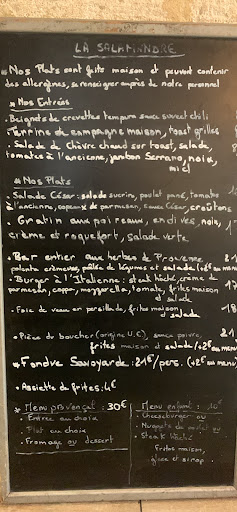 LA SALAMANDRE
* Nos Plats sont faits maison et peuvent contenir
des allergènes, se renseigner auprès de notre personnel
* Nos Entrées
. Beignets de crevettes tempura sauce sweet chili
. Terrine de campagne maison, toast grillés
. Salade de chèvre chaud sur toast, salade,
tomates à l'ancienne, jambon Serrano, noix,
miel
* Nos Plats
. Salade César: salade sucrine, poulet pané, tomates
à l'ancienne, copeaux de parmesan, sauce César, croûtons
. Gratin aux poireaux, endives, noix,
crème et roquefort, salade verte
. Bar entier aux herbes de Provence
polenta crémeuse, poêlée de légumes et salade (+2€ au menu)
. Burger à l'Italienne: steak haché, crème de
parmesan, copper, mozzarella, tomate, frites maison
et salade
. Foie de veau en persillade, frites maison
et salade
. Pièce du boucher (origine U.C), sauce poivre,
frites maison et salade (+2€ au menu)
* Fondue Savoyarde: 21€/pers. (+2€ au menu)
. Assiette de frites: 4€
* Menu provençal: 30€
. Entrée au choix
. Plat au choix
. Fromage ou dessert
Menu enfant: 10€
. Cheeseburger ou
. Nuggets de poulet ou
. Steak haché
Frites maison,
glace et sirop.